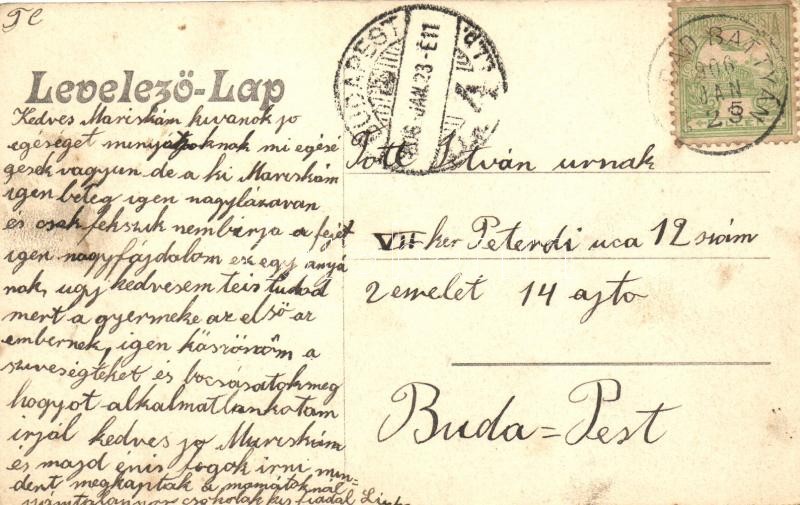 TC
Levelező-Lap
Kedves Mariskám kivanok jo
egéséget minyájoknak mi egése
gesek vagyun de a ki Mariskám
igen beteg igen nagylázavan
és csak fekszik nembirja a fejét
igen nagyfájdalom ez egy anyá
nak, ugy kedvesem teis tudod
mert a gyermeke az első az
embernek, igen köszönöm a
sziveségteket es bocsásatokmeg
hogyot alkalmatlankotam
irjál kedves jo Mariskám
és majd énis fogok irni min-
dent megkaptak a mamátoknál
számtalanszor csokolak kis fiadal
BUDAPEST
906 JAN. 23 - É11
István urnak
VII ker Peterdi uca 12 szám
2 emelet 14 ajto
Buda=Pest
BATTYÁN
906
JAN
23
5